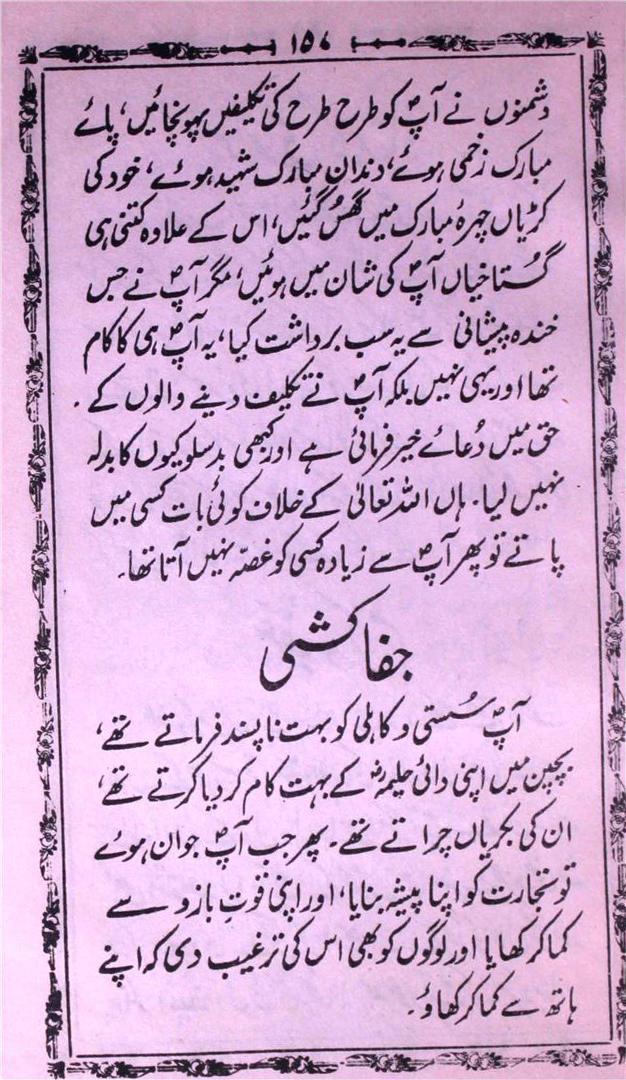 ۱۵۷
دشمنوں نے آپؐ کو طرح طرح کی تکلیفیں پہونچائیں، پائے
مبارک زخمی ہوئے، دندانِ مبارک شہید ہوئے، خود کی
کڑیاں چہرۂ مبارک میں گھُس گئیں، اس کے علاوہ کتنی ہی
گستاخیاں آپؐ کی شان میں ہوئیں، مگر آپؐ نے جس
خندہ پیشانی سے یہ سب برداشت کیا، یہ آپؐ ہی کا کام
تھا اور یہی نہیں بلکہ آپؐ نے تکلیف دینے والوں کے
حق میں دُعائے خیر فرمائی ہے اور کبھی بدسلوکیوں کا بدلہ
نہیں لیا۔ ہاں اللہ تعالیٰ کے خلاف کوئی بات کسی میں
پاتے تو پھر آپؐ سے زیادہ کسی کو غصّہ نہیں آتا تھا۔
جفاکشی
آپؐ سُستی و کاہلی کو بہت ناپسند فرماتے تھے،
بچپن میں اپنی دائی حلیمہؓ کے بہت کام کر دیا کرتے تھے،
ان کی بکریاں چراتے تھے۔ پھر جب آپؐ جوان ہوئے
تو تجارت کو اپنا پیشہ بنایا، اور اپنی قوتِ بازو سے
کما کر کھایا اور لوگوں کو بھی اس کی ترغیب دی کہ اپنے
ہاتھ سے کما کر کھاؤ۔